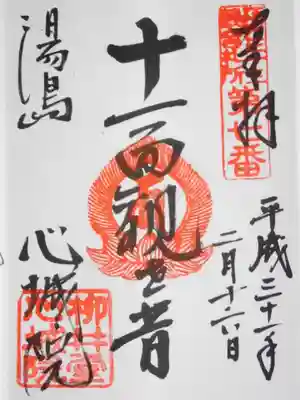 奉拝
平成三十一年
二月十六日
十一面観世音
湯島
心城院
柳井堂
心城院